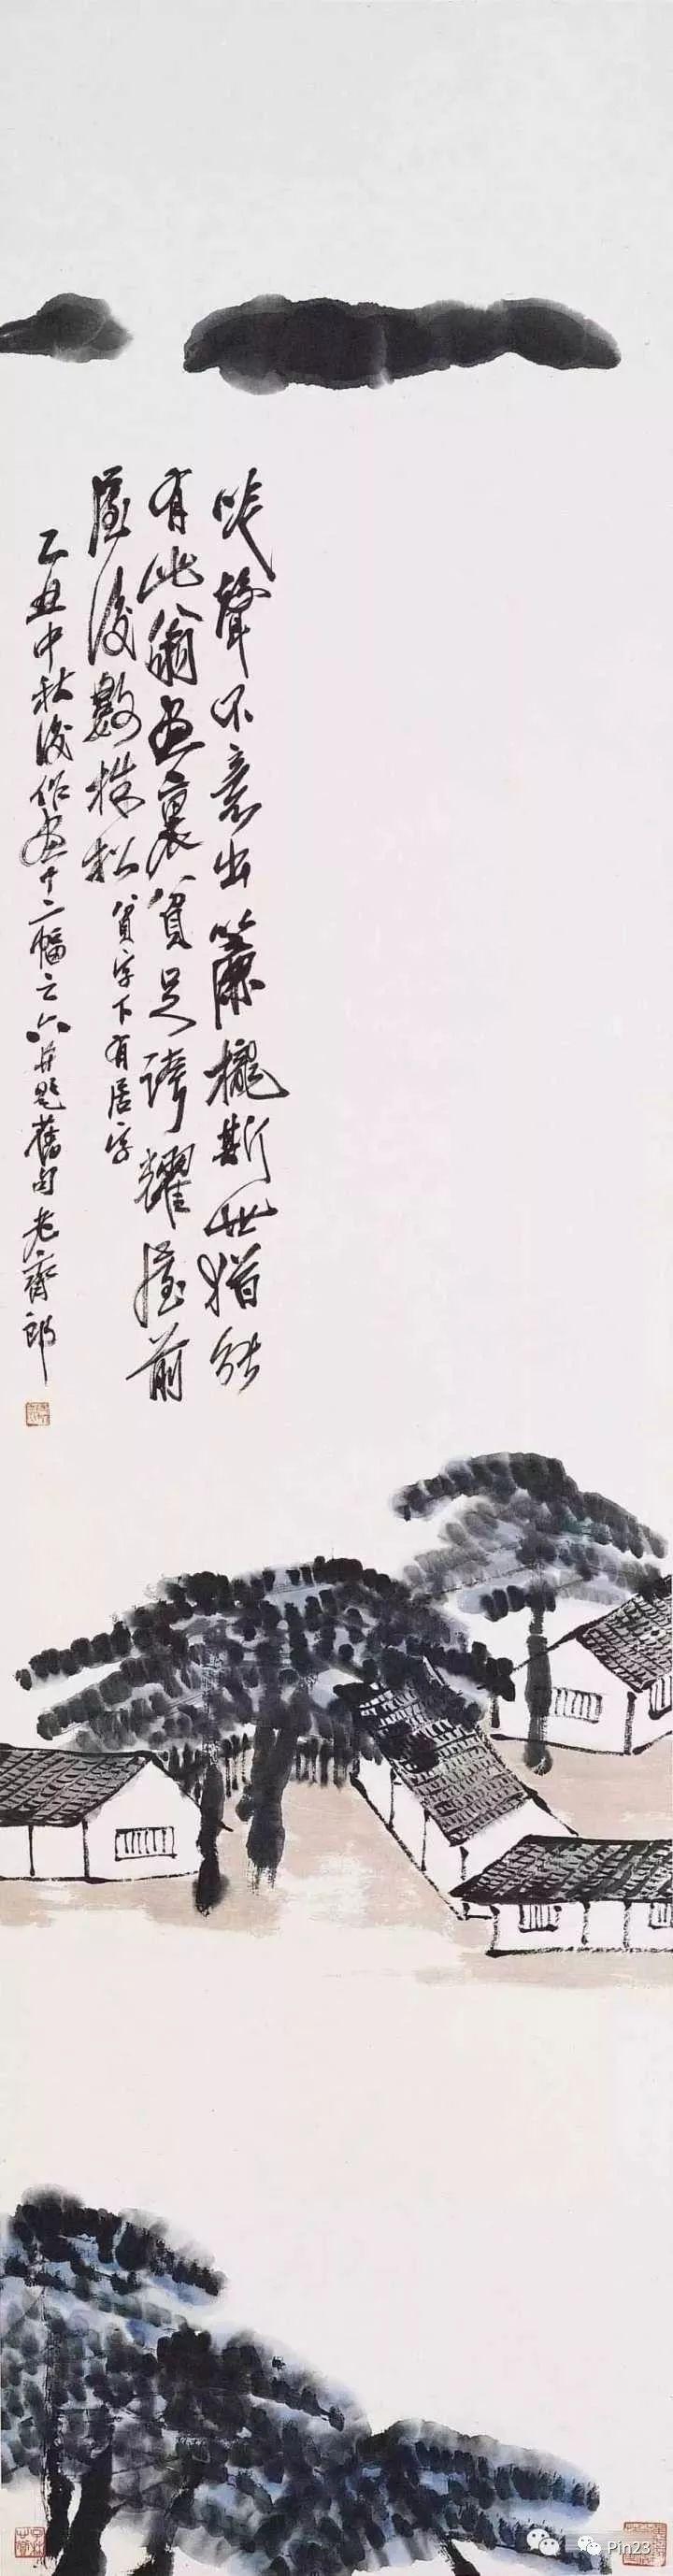 咲聲不意出簾櫳斯世猶能
有此翁畫裏貧足誇耀屋前
屋後數株松貧字下有居字
乙丑中秋後作畫十二幅之六并題舊句老齊郎
Pin23